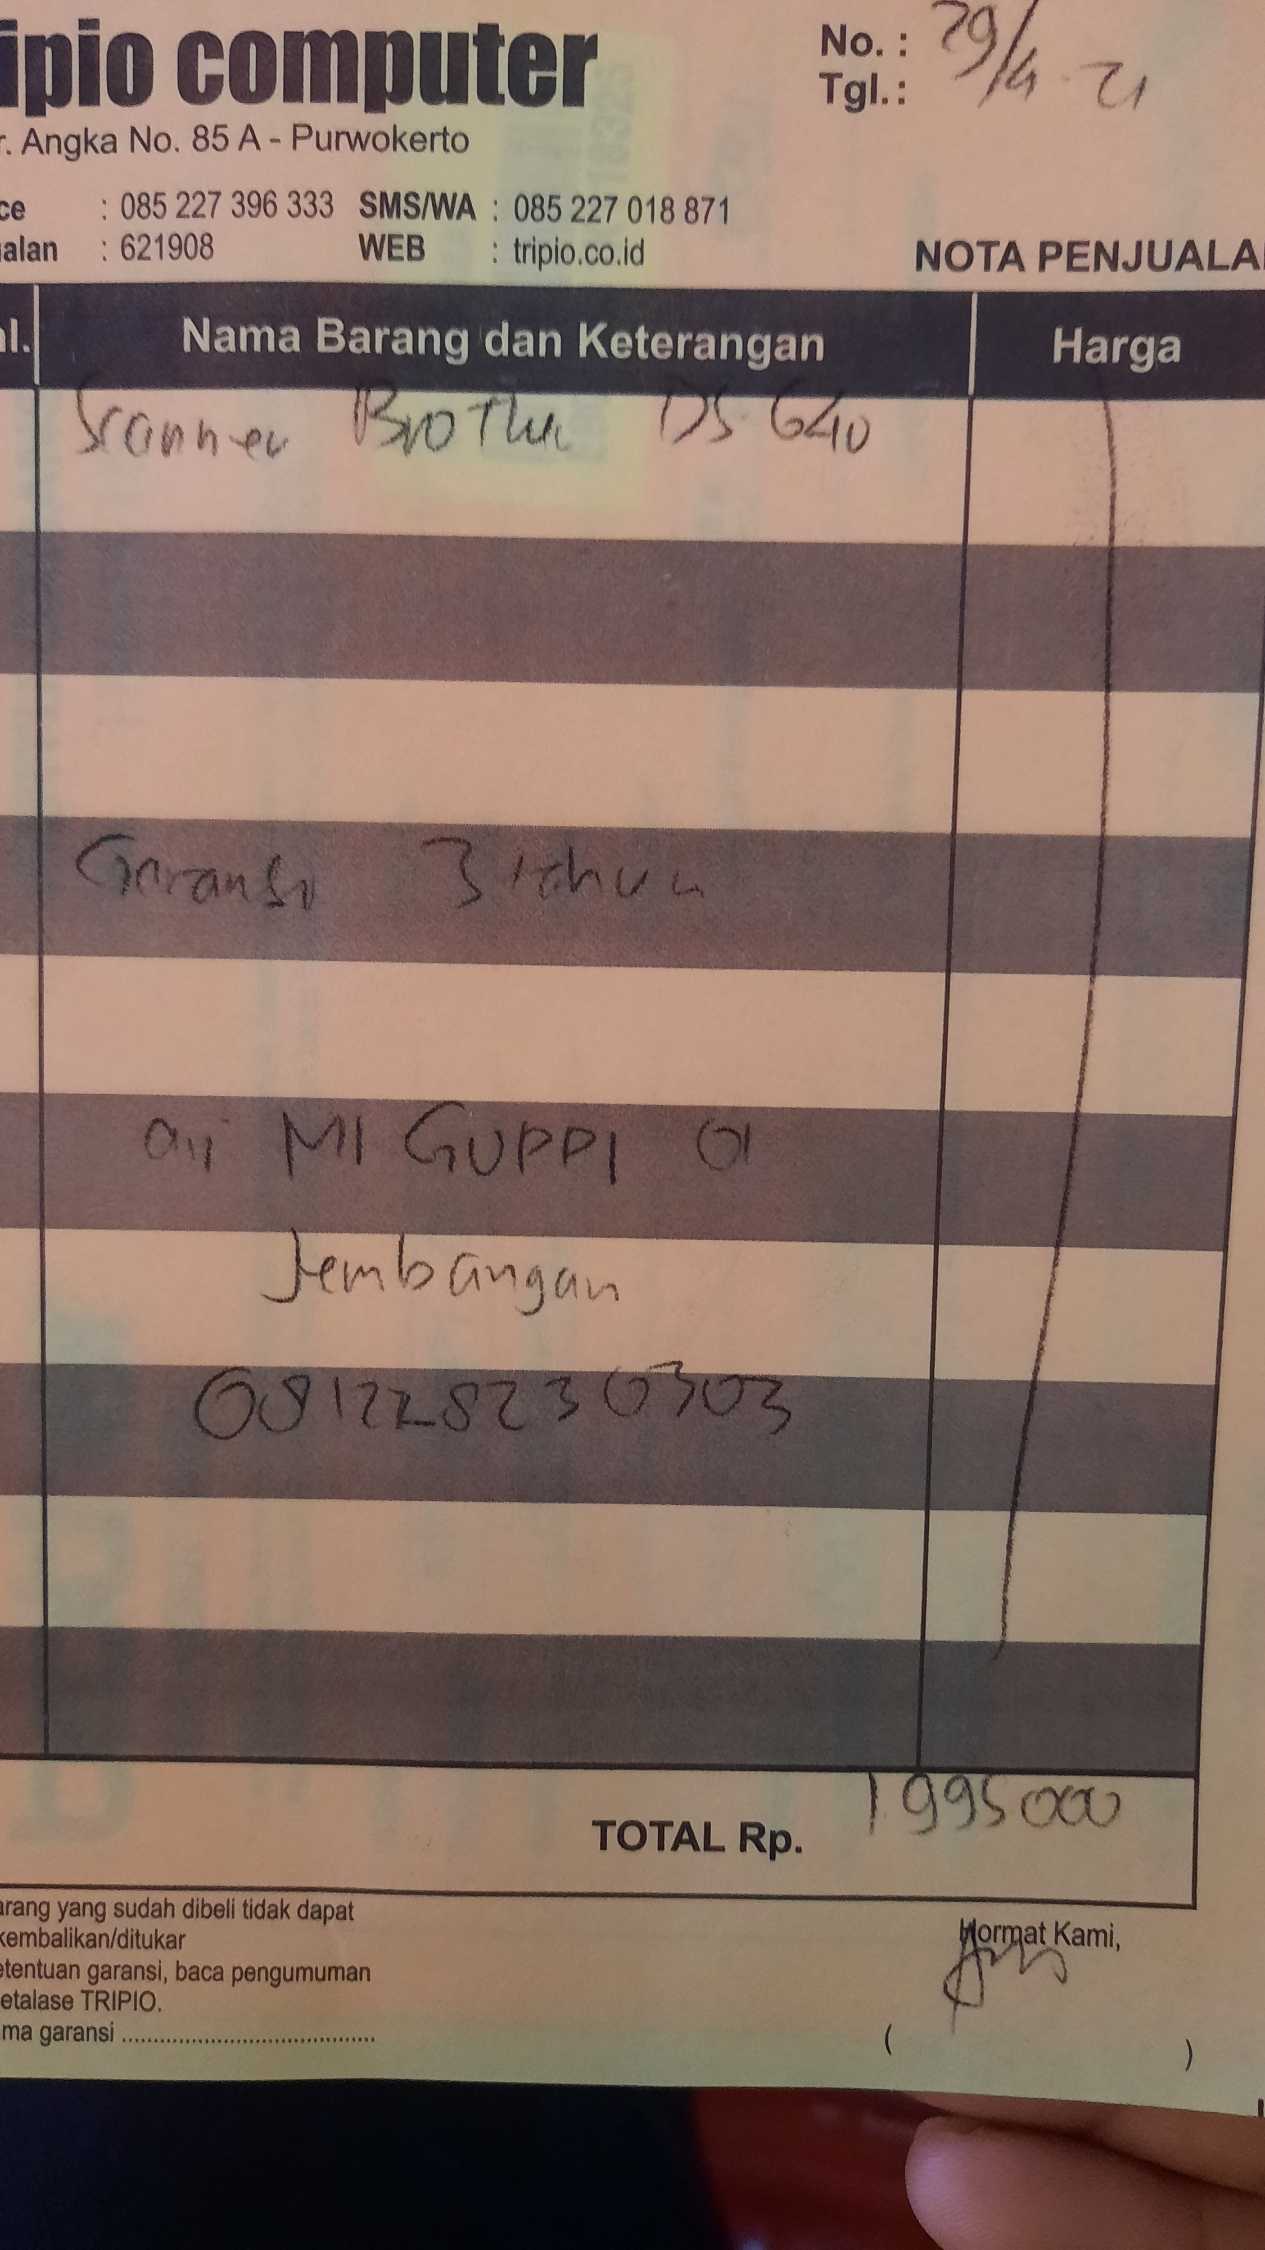 ipio computer
No. :
r. Angka No. 85 A - Purwokerto
Tgl. : 29/4-21
ce : 085 227 396 333 SMS/WA : 085 227 018 871
alan : 621908 WEB : tripio.co.id
NOTA PENJUALA
al. Nama Barang dan Keterangan Harga
Scanner Brother DS-640
Garansi 3 tahun
MI GUPPI 01
Jembangan
081228230303
TOTAL Rp. 1995000
arang yang sudah dibeli tidak dapat
kembalikan/ditukar
etentuan garansi, baca pengumuman
etalase TRIPIO.
ma garansi ..........................................
Hormat Kami,
( )